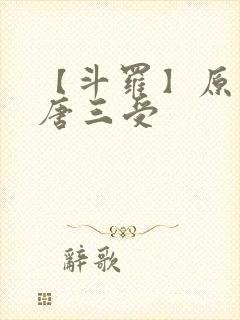 【斗羅】原
唐三受
辭歌